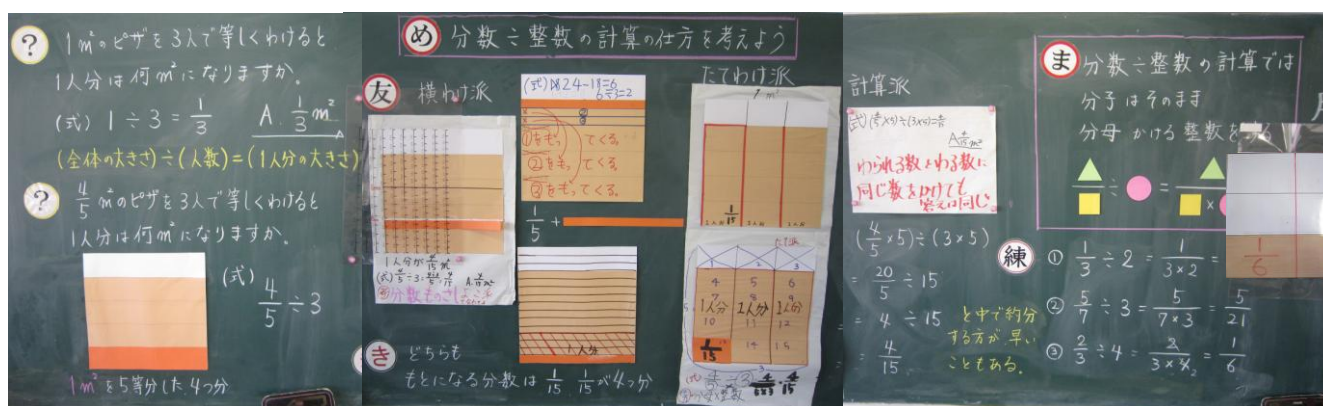 ?
1m²のピザを3人で等しくわけると
1人分は何m²になりますか。
(式) 1÷3=1/3 A. 1/3m²
(全体の大きさ)÷(人数)=(1人分の大きさ)
?
4/5m²のピザを3人で等しくわけると
1人分は何m²になりますか。
(式)
4/5÷3
1m²を5等分した4つ分
め 分数÷整数の計算の仕方を考えよう
友 横わけ派
1人分が4/15m²
(式)
24-18=6
6÷3=2
①をもってくる。
②をもってくる。
③をもってくる。
1/5+
1人分
たてわけ派
1m²
1/15
1人分 1人分 1人分
1 2 3
4 5 6
7 8 9
1人分 1人分 1人分
10 11 12
1/15 14 15
き どちらも
もとになる分数は 1/15 1/15が4つ分
計算派
(式)(4/5×5)÷(3×5)=4/15
A 4/15m²
わられる数とわる数に
同じ数をかけても
答えは同じ
(4/5×5)÷(3×5)
=20/5÷15
=4÷15
=4/15
と中で約分
する方が早い
こともある。
ま 分数÷整数の計算では
分子はそのまま
分母かける整数を
÷ = ×
練
① 1/3÷2=1/(3×2)=
1/6
② 5/7÷3=5/(7×3)=5/21
③ 2/3÷4=2/(3×4)=1/6